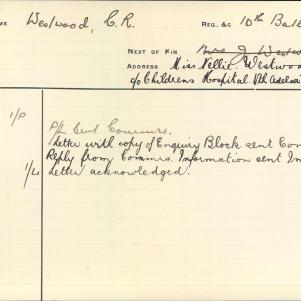 AME Westwood, C. R. REG. &c 10th Batt
NEXT OF KIN Mrs J Westwo
ADDRESS Miss Nellie Westwood
c/o Childrens Hospital Nth Adelai
1/P P/L Sent Commrs.
Letter with copy of Enquiry Block sent Com
Reply from Commrs. Information sent In
1/4 Letter acknowledged.